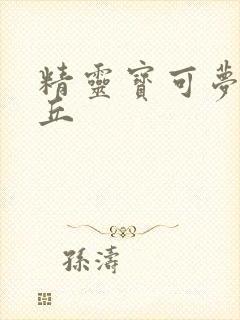 精靈寶可夢
丘
孫濤